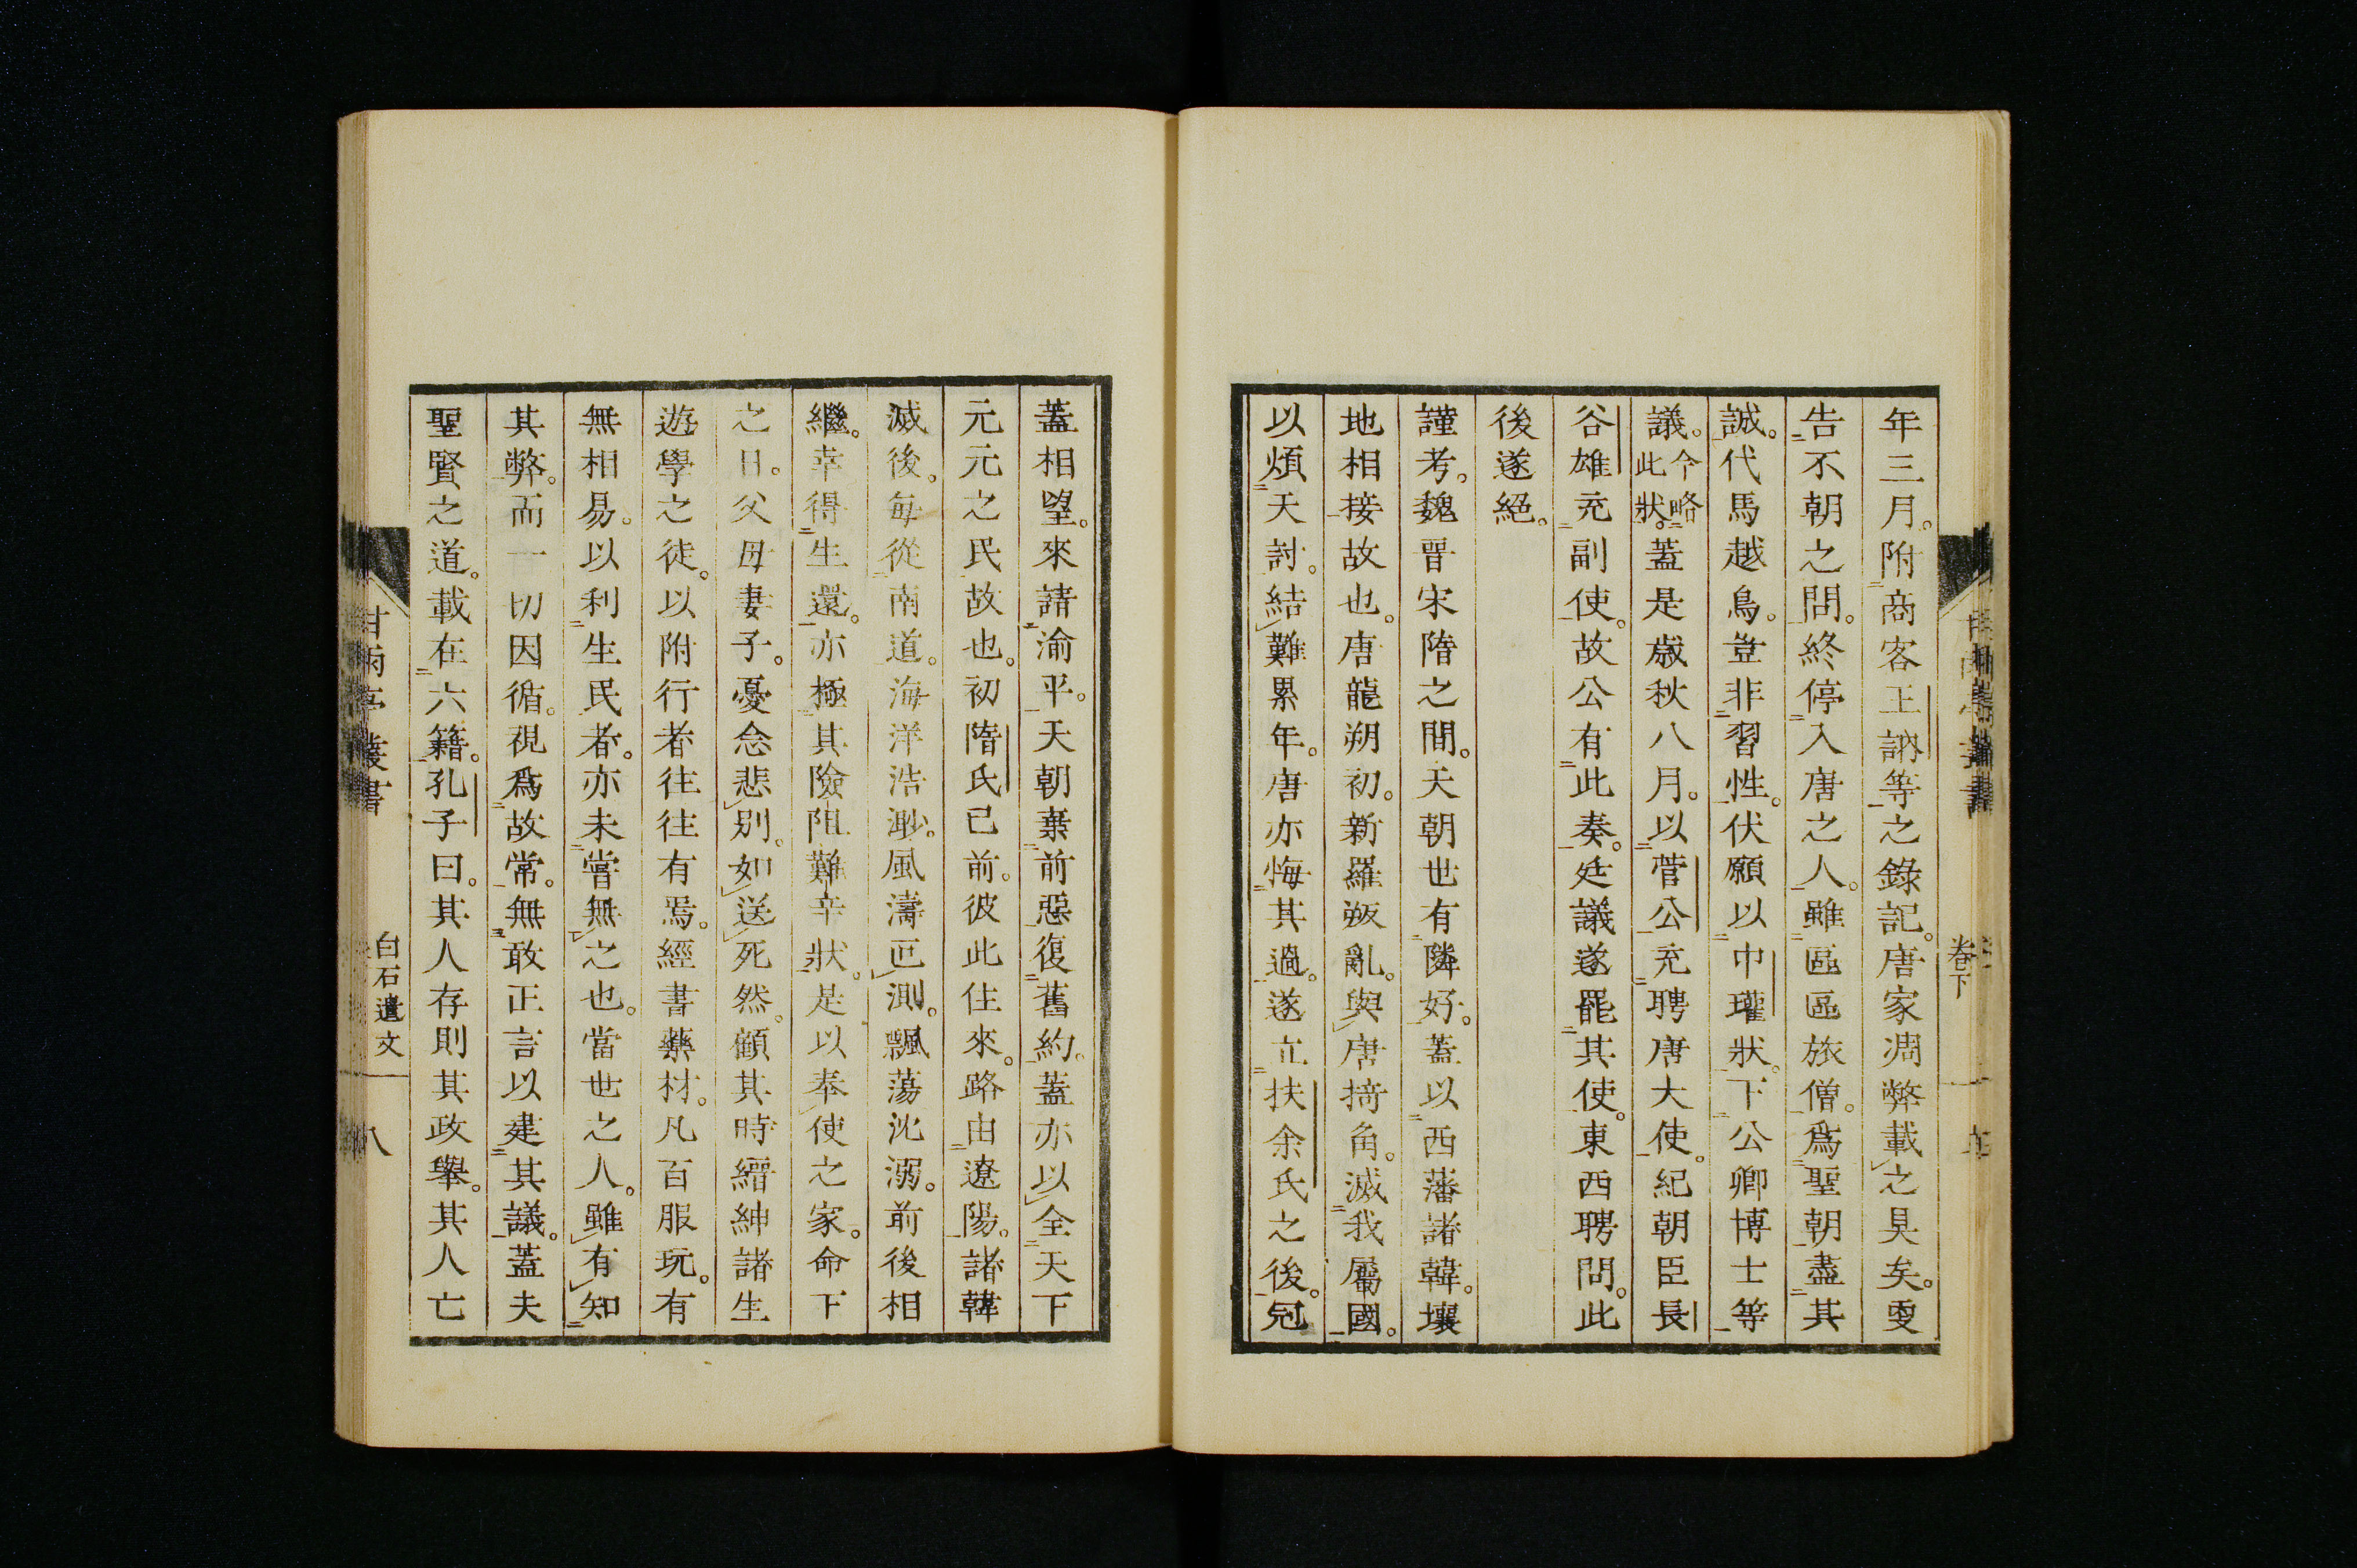 年三月。附商客王訥等之錄記。唐家凋弊載之具矣。更
告不朝之問。終停入唐之人。雖區區旅僧。爲聖朝盡其
誠。代馬越鳥。豈非習性。伏願以中瓘狀。下公卿博士等
議。今略此狀。蓋是歲秋八月。以菅公充聘唐大使。紀朝臣長
谷雄充副使。故公有此奏。廷議遂罷其使。東西聘問。此
後遂絕。
謹考。魏晉宋隋之間。天朝世有隣好。蓋以西藩諸韓。壤
地相接故也。唐龍朔初。新羅叛亂。與唐掎角。滅我屬國。
以煩天討。結難累年。唐亦悔其過。遂立扶余氏之後。冠
卷下
蓋相望。來請渝平。天朝棄前惡復舊約。蓋亦以全天下
元元之民故也。初隋氏已前。彼此往來。路由遼陽。諸韓
滅後。每從南道。海洋浩渺。風濤叵測。飄蕩沈溺。前後相
繼。幸得生還。亦極其險阻難辛狀。是以奉使之家。命下
之日。父母妻子。憂念悲別。如送死然。顧其時縉紳諸生
遊學之徒。以附行者往往有焉。經書藥材。凡百服玩。有
無相易。以利生民者。亦未嘗無之也。當世之人。雖有知
其弊。而一切因循。視爲故常。無敢正言以建其議。蓋夫
聖賢之道。載在六籍。孔子曰。其人存則其政舉。其人亡
甘雨亭叢書
白石遺文
八